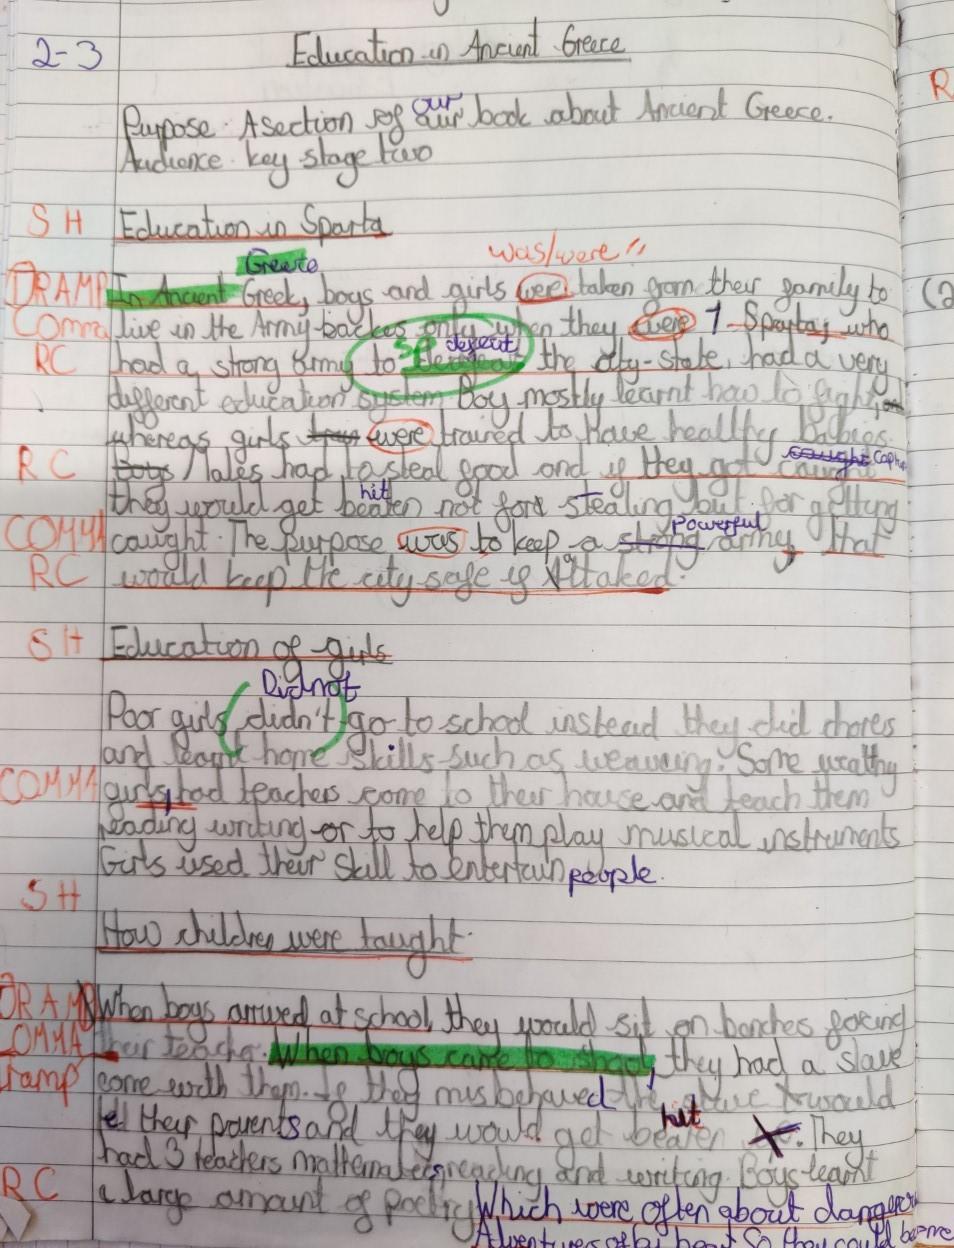 2-3 Education in Ancient Greece
our
Purpose: A section of our book about Ancient Greece.
Audience: key stage two
SH Education in Sparta
Greece was/were "
DRAMP In Ancient Greek, boys and girls were taken from their family to
Comma live in the Army backes only when they were 7 Sparta, who
sp defeat
RC had a strong army to the city-state, had a very
different education system Boy mostly learnt how to fight,
whereas girls they were trained to have healthy Babies.
caught captu
RC Boys Males had to steal food and if they got caught
hit
they would get beaten not for stealing but for getting
Powerful
COMMA caught. The purpose was to keep a strong army, that
RC would keep the city safe if Attaked.
SH Education of girls
Did not
Poor girls didn't go to school instead they did chores
and learnt home skills such as weaveing. Some wealthy
COMMA girls, had teachers come to their house and teach them
reading writing or to help them play musical instruments
Girls used their skill to entertain people.
SH
How children were taught.
DRAMP When boys arrived at school, they would sit on banches facing
COMMA their teacher. When boys came to shool, they had a slave
ramp come with them. If they misbehaved the slave would
hit
tell their parents and they would get beaten X. They
had 3 teachers mathematics reading and writing. Boys learnt
RC a large amount of poetry Which were often about dangerous
Adventures of by heart So they could become
R
(2